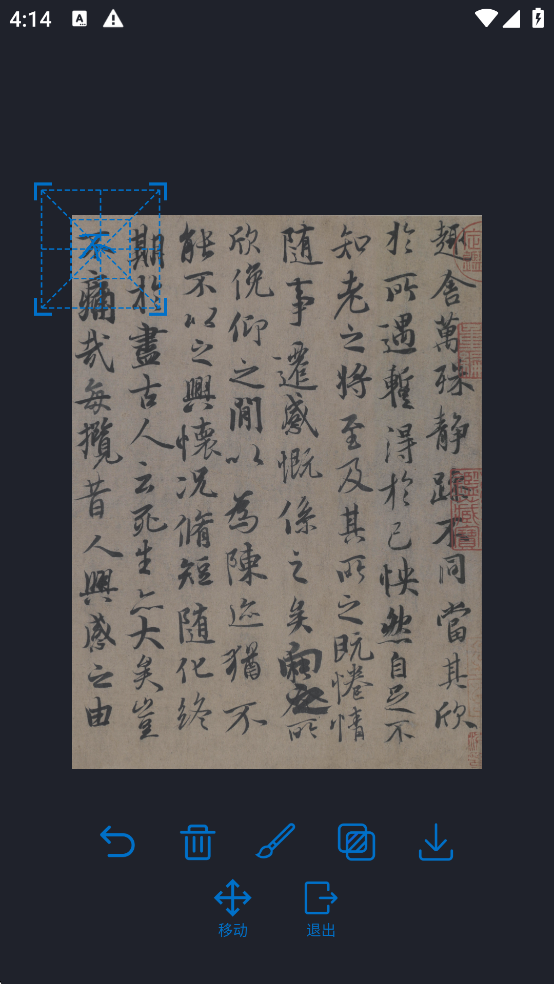 4:14
A
趣舍萬殊静躁不同當其欣
於所遇暫得於己怏然自足不
知老之將至及其所之既惓情
随事遷感慨係之矣向之所
欣俛仰之閒以為陳迹猶不
能不以之興懷况脩短随化終
期於盡古人云死生亦大矣豈
不痛哉每攬昔人興感之由
移动
退出